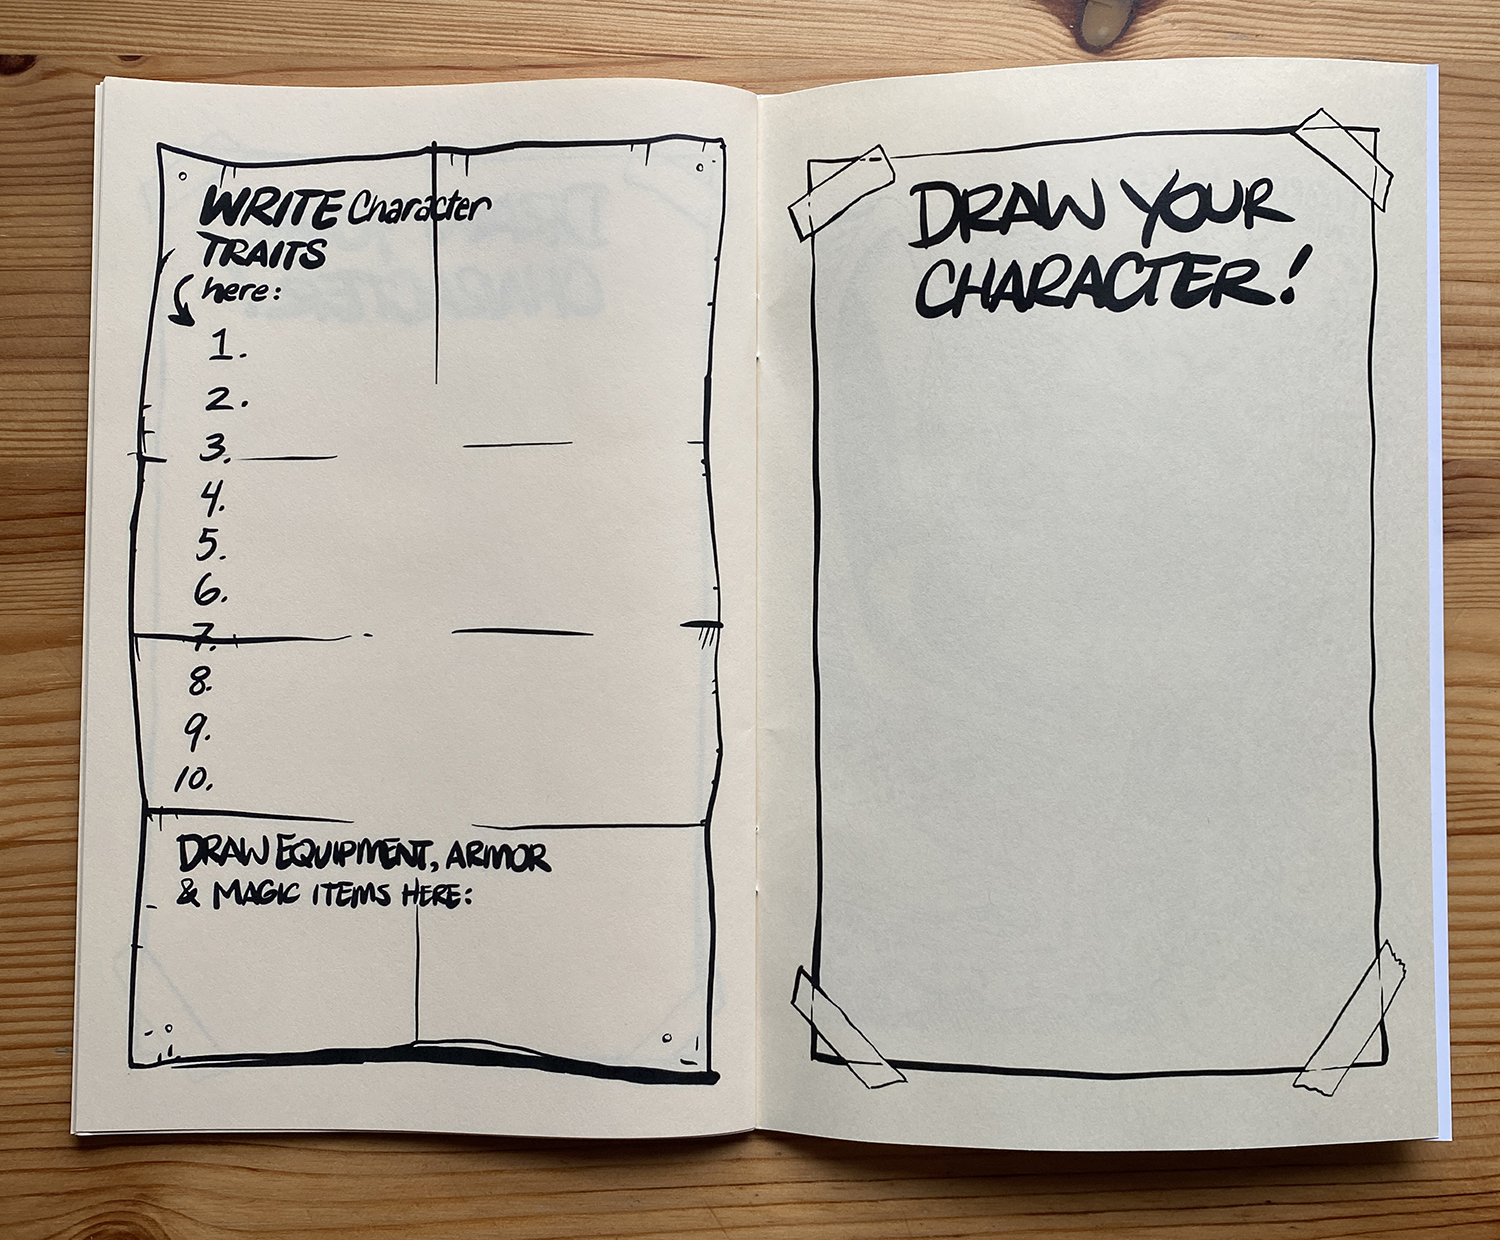 WRITE Character
TRAITS
here:
1.
2.
3.
4.
5.
6.
7.
8.
9.
10.
DRAW EQUIPMENT, ARMOR
& MAGIC ITEMS HERE:
DRAW YOUR
CHARACTER!